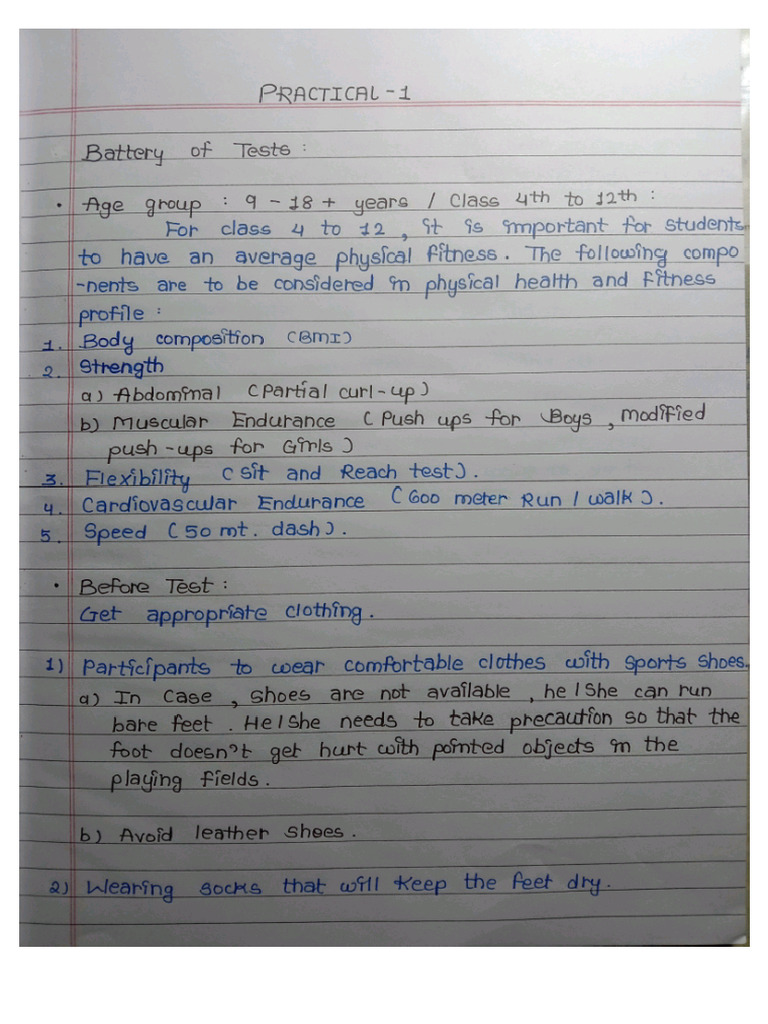 PRACTICAL-1
Battery of Tests :
• Age group : 9 - 18 + years / Class 4th to 12th :
For class 4 to 12 , it is important for students
to have an average physical fitness. The following compo
-nents are to be considered in physical health and fitness
profile :
1. Body composition (BMI)
2. Strength
a) Abdominal (Partial curl-up)
b) Muscular Endurance ( Push ups for Boys , modified
push-ups for Girls )
3. Flexibility ( sit and Reach test).
4. Cardiovascular Endurance ( 600 meter Run / walk ).
5. Speed ( 50 mt. dash).
• Before Test :
Get appropriate clothing.
1) Participants to wear comfortable clothes with sports shoes.
a) In case , shoes are not available , he/she can run
bare feet . He/She needs to take precaution so that the
foot doesn't get hurt with pointed objects in the
playing fields.
b) Avoid leather shoes.
2) Wearing socks that will keep the feet dry.